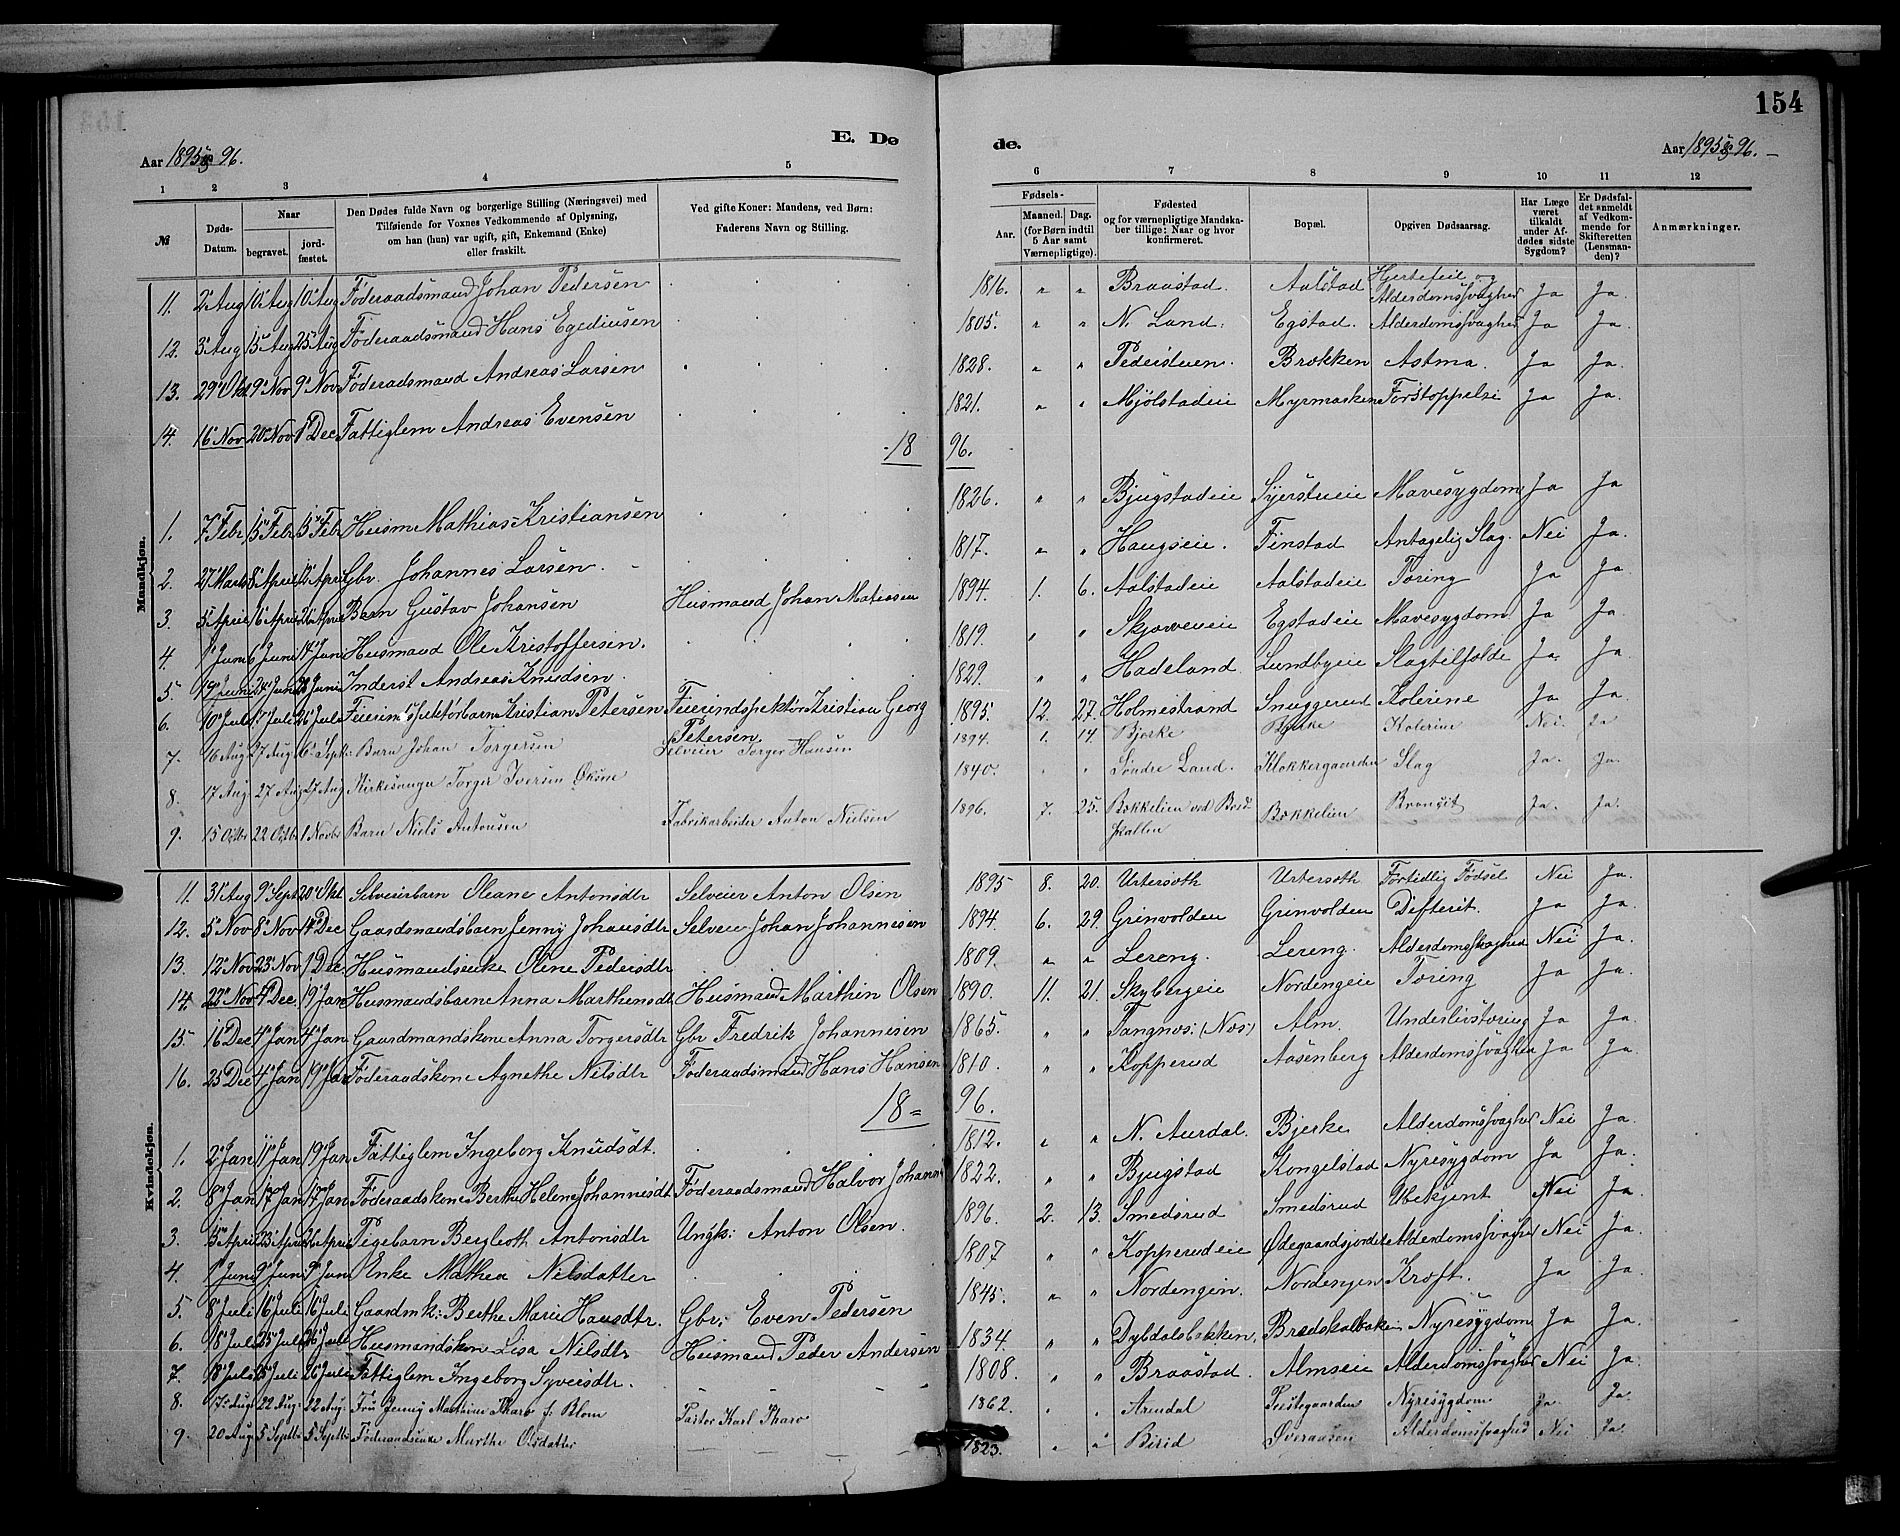 154
E. Dø de.
Aar 1895 & 96. Aar 1895 & 96. —
1 2 3 4 5 6 7 8 9 10 11 12
№
Døds-Datum.
Naar
begravet.
jord-fæstet.
Den Dødes fulde Navn og borgerlige Stilling (Næringsvei) med
Tilføiende for Voxnes Vedkommende af Oplysning,
om han (hun) var ugift, gift, Enkemand (Enke)
eller fraskilt.
Ved gifte Koner: Mandens, ved Børn:
Faderens Navn og Stilling.
Fødsels-
Aar.
Maaned. Dag.
(for Børn indtil
5 Aar samt
Værnepligtige).
Fødested
og for værnepligtige Mandska-
ber tillige: Naar og hvor
konfirmeret.
Bopæl.
Opgiven Dødsaarsag.
Har Læge
været
tilkaldt
under Af-
dødes sidste
Sygdom?
Er Dødsfal-
det anmeldt
af Vedkom-
mende for
Skifteretten
(Lensman-
den)?
Anmærkninger.
Mandkjøn.
11. 2 Aug 10 Aug 10 Aug Føderaadsmand Johan Pedersen 1816. " " Braastad. Aalstad Hjertefeil og Alderdomssvaghed Ja Ja.
12. 3 Aug 15 Aug 25 Aug Føderaadsmand Hans Egediusen 1805. " " N. Land. Egstad. Alderdomssvaghed Ja Ja.
13. 29 Okt 9 Nov 9 Nov Føderaadsmand Andreas Larsen 1828. " " Pederstuen. Brækken Astma. Ja Ja.
14. 16 Nov 20 Nov 1 Dec Fattiglem Andreas Evensen 1821. " " Mjølstadeie Myrmarken Forstoppelse Ja Ja.
18 96.
1. 7 Febr 15 Febr 15 Febr Husm Mathias Kristiansen 1826. " " Bjugstadeie Syerstueie Mavesygdom Ja Ja
2. 27 Marts 8 April 12 April Gbr. Johannes Larsen. 1817. " " Haugseie. Finstad Antagelig Slag. Nei Ja.
3. 5 April 16 April 26 April Barn Gustav Johansen Husmand Johan Matiasen 1894. 1. 6. Aalstadeie Aalstadeie Tæring Ja Ja.
4. 1 Juni 6 Juni 14 Juni Husmand Ole Kristoffersen. 1819. " " Skjæweeie Egstadeie Mavesygdom Ja Ja.
5. 19 Juni 24 Juni 28 Juni Inderst Andreas Knudsen. 1829. " " Hadeland Lundbyeie Slagtilfælde Ja. Ja.
6. 10 Juli 17 Juli 26 Juli Feierinspektørbarn Kristian Petersen Feierindspektør Kristian Georg Petersen. 1895. 12. 27. Holmestrand Snuggerud Kolerine Ja Ja.
7. 16 Aug 27 Aug 6 Sept: Barn Johan Torgersen Selveier Torger Hansen 1894. 1. 14. Bjerke Bjerke Kolerine Nei. Ja
8. 17 Aug 27 Aug 27 Aug Kirkesanger Torger Iversen Økern 1840. " " Søndre Land. Klokkergaarden Slag Ja. Ja.
9. 15 Octbr 22 Octbr 1 Novbr Barn Niels Antonsen Fabrikarbeider Anton Nielsen 1896. 7. 25. Bækkelien ved Bredskallen Bækkelien Bronchit Ja. Ja.
Kvindekjøn.
11. 31 Aug 9 Sept 20 Okt Selveierbarn Oleane Antonsdtr Selveier Anton Olsen 1895 8. 20. Urtersoth Urtersoth Fortidlig Fødsel Nei Ja.
12. 5 Nov 8 Nov 14 Dec Gaardmandsbarn Jenny Johansdtr Selveier Johan Johannesen 1894. 6. 29. Grinvolden Grinvolden Difterit. Ja Ja.
13. 12 Nov 23 Nov 1 Dec Husmandsenke Olene Pedersdtr 1809. " " Lereng. Lereng. Alderdomssvaghed Nei Ja.
14. 22 Nov 4 Dec. 19 Jan Husmandsbarn Anna Marthinsdtr Husmand Marthin Olsen 1890. 11. 21. Skybergeie Nordengeie Tæring Ja Ja.
15. 16 Dec 4 Jan 4 Jan Gaardmandskone Anna Torgersdtr Gbr Fredrik Johannesen 1865. " " Tangnæs: (Næs.) Alm. Underlivstæring Ja Ja.
16. 25 Dec 4 Jan 19 Jan Føderaadskone Agnethe Nilsdtr Føderaadsmand Hans Hansen 1810. " " Kopperud Aasenberg Alderdomssvaghed Ja Ja.
18 96.
1. 2 Jan 11 Jan 19 Jan Fattiglem Ingeborg Knudsdt. 1812. " " N. Aurdal. Bjerke Alderdomssvaghed Nei Ja.
2. 8 Jan 17 Jan 17 Jan Føderaadskone Berthe Helene Johannesdt Føderaadsmand Halvor Johann 1822. " " Bjugstad Kongelstad Nyresygdom Ja Ja.
3. 15 April 23 April 26 April Pigebarn Berglioth Antonsdtr Ungk: Anton Olsen. 1896. 2. 13. Smedsrud Smedsrud Ubekjent Nei Ja.
4. 1 Juni 9 Juni 9 Juni Enke Mathea Nilsdatter 1807 " " Kopperudeie Ødegaardsjordet Alderdomssvaghed Nei Ja.
5. 8 Juli 16 Juli 16 Juli Gaardmk: Berthe Marie Hansdtr. Gbr: Even Pedersen 1845. " " Nordengen. Nordengen Kræft. Ja Ja.
6. 18 Juli 25 Juli 26 Juli Husmandskone Lisa Nilsdtr Husmand Peder Andersen 1834. " " Dybdalsbakken, Bredskalbakken Nyresygdom Ja Ja.
7. 18 Juli 25 Juli 26 Juli Fattiglem Ingeborg Syversdtr. 1808. " " Braastad. Almseie Alderdomssvaghed Nei Ja.
8. 17 Aug: 22 Aug: 22 Aug: Fru Jenny Mathine Tharo f: Blom Pastor Karl Tharo 1862. " " Arendal Prestegaarden Nyresygdom Ja. Ja.
9. 20 Aug 5 Septbr 5 Septbr Føderaadsenke Marthe Olsdatter 1823. " " Birid Øveraasen Alderdomssvaghed Nei Ja.